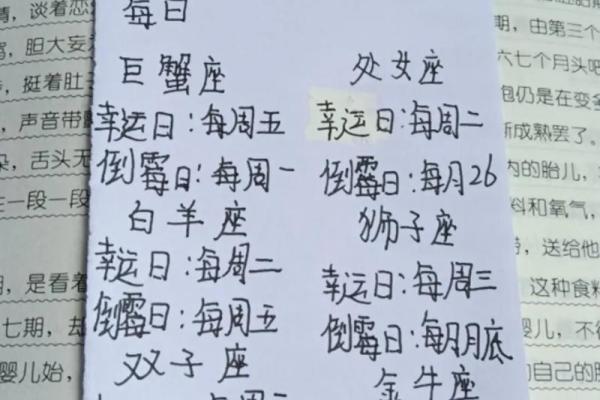 每日
巨蟹座
幸运日:每周五
倒霉日:每周一
白羊座
幸运日:每周二
倒霉日:每周五
双子座
处女座
幸运日:每周二
倒霉日:每月26
狮子座
幸运日:每周三
倒霉日:每月月底
金牛座
,谈着恋
,胆大妄
,挺着肚
,声音带
,舌头无
在一段一段
,是看着
七期,却
婴儿始,
期,由第三个
六七个月头吧
胞仍是在变
渐成熟罢了。
内的胎儿,
料和氧气,
,送给他
这种食料
婴儿,不
自己的